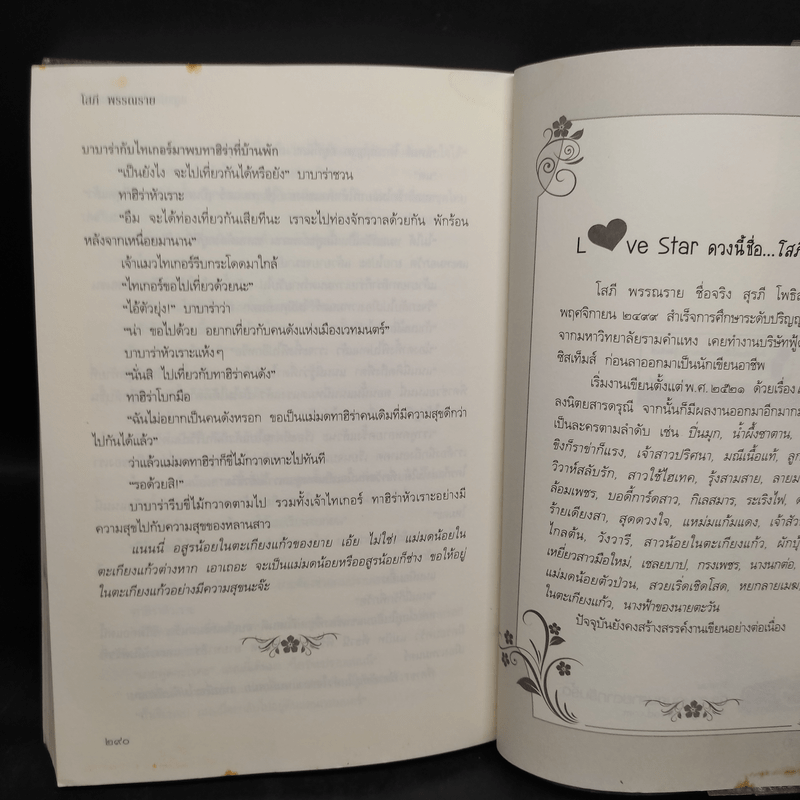 โสภี พรรณราย
บาบาร่ากับไทเกอร์มาพบทาฮิร่าที่บ้านพัก
“เป็นยังไง จะไปเที่ยวกันได้หรือยัง” บาบาร่าชวน
ทาฮิร่าหัวเราะ
“อืม จะได้ท่องเที่ยวกันเสียทีนะ เราจะไปท่องจักรวาลด้วยกัน พักร้อน
หลังจากเหนื่อยมานาน”
เจ้าแมวไทเกอร์รีบกระโดดมาใกล้
“ไทเกอร์ขอไปเที่ยวด้วยนะ”
“ไอ้ตัวยุ่ง!” บาบาร่าว่า
“น่า ขอไปด้วย อยากเที่ยวกับคนดังแห่งเมืองเวทมนตร์”
บาบาร่าหัวเราะแห้งๆ
“นั่นสิ ไปเที่ยวกับทาฮิร่าคนดัง”
ทาฮิร่าโบกมือ
“ฉันไม่อยากเป็นคนดังหรอก ขอเป็นแม่มดทาฮิร่าคนเดิมที่มีความสุขดีกว่า
ไปกันได้แล้ว”
ว่าแล้วแม่มดทาฮิร่าก็ขี่ไม้กวาดเหาะไปทันที
“รอด้วยสิ!”
บาบาร่ารีบขี่ไม้กวาดตามไป รวมทั้งเจ้าไทเกอร์ ทาฮิร่าหัวเราะอย่างมี
ความสุขไปกับความสุขของหลานสาว
แนนนี่ อสูรน้อยในตะเกียงแก้วของยาย เอ๊ย ไม่ใช่! แม่มดน้อยใน
ตะเกียงแก้วต่างหาก เอาเถอะ จะเป็นแม่มดน้อยหรืออสูรน้อยก็ช่าง ขอให้อยู่
ในตะเกียงแก้วอย่างมีความสุขนะจ๊ะ
๒๙๐
L ve Star ดวงนี้ชื่อ...โสภี
โสภี พรรณราย ชื่อจริง สุรภี โพธิส
พฤศจิกายน ๒๔๙๙ สำเร็จการศึกษาระดับปริญญ
จากมหาวิทยาลัยรามคำแหง เคยทำงานบริษัทฟู้ด
ซิสเท็มส์ ก่อนลาออกมาเป็นนักเขียนอาชีพ
เริ่มงานเขียนตั้งแต่พ.ศ.๒๕๒๑ ด้วยเรื่อง
ลงนิตยสารดรุณี จากนั้นก็มีผลงานออกมาอีกมากม
เป็นละครตามลำดับ เช่น ปิ่นมุก, น้ำผึ้งซาตาน,
ขิงก็ราข่าก็แรง, เจ้าสาวปริศนา, มณีเนื้อแท้, ลูก
วิวาห์สลับรัก, สาวใช้ไฮเทค, รุ้งสามสาย, ลายม
ล้อมเพชร, บอดี้การ์ดสาว, กิเลสมาร, ระเริงไฟ,
ร้ายเดียงสา, สุดดวงใจ, แหม่มแก้มแดง, เจ้าสัว
ไกลต้น, วังวารี, สาวน้อยในตะเกียงแก้ว, ผักบุ้
เหยี่ยวสาวมือใหม่, เชลยบาป, กรงเพชร, นางนกต่อ,
แม่มดน้อยตัวป่วน, สวยเริ่ดเชิดโสด, หยกลายเมฆ
ในตะเกียงแก้ว, นางฟ้าของนายตะวัน
ปัจจุบันยังคงสร้างสรรค์งานเขียนอย่างต่อเนื่อง